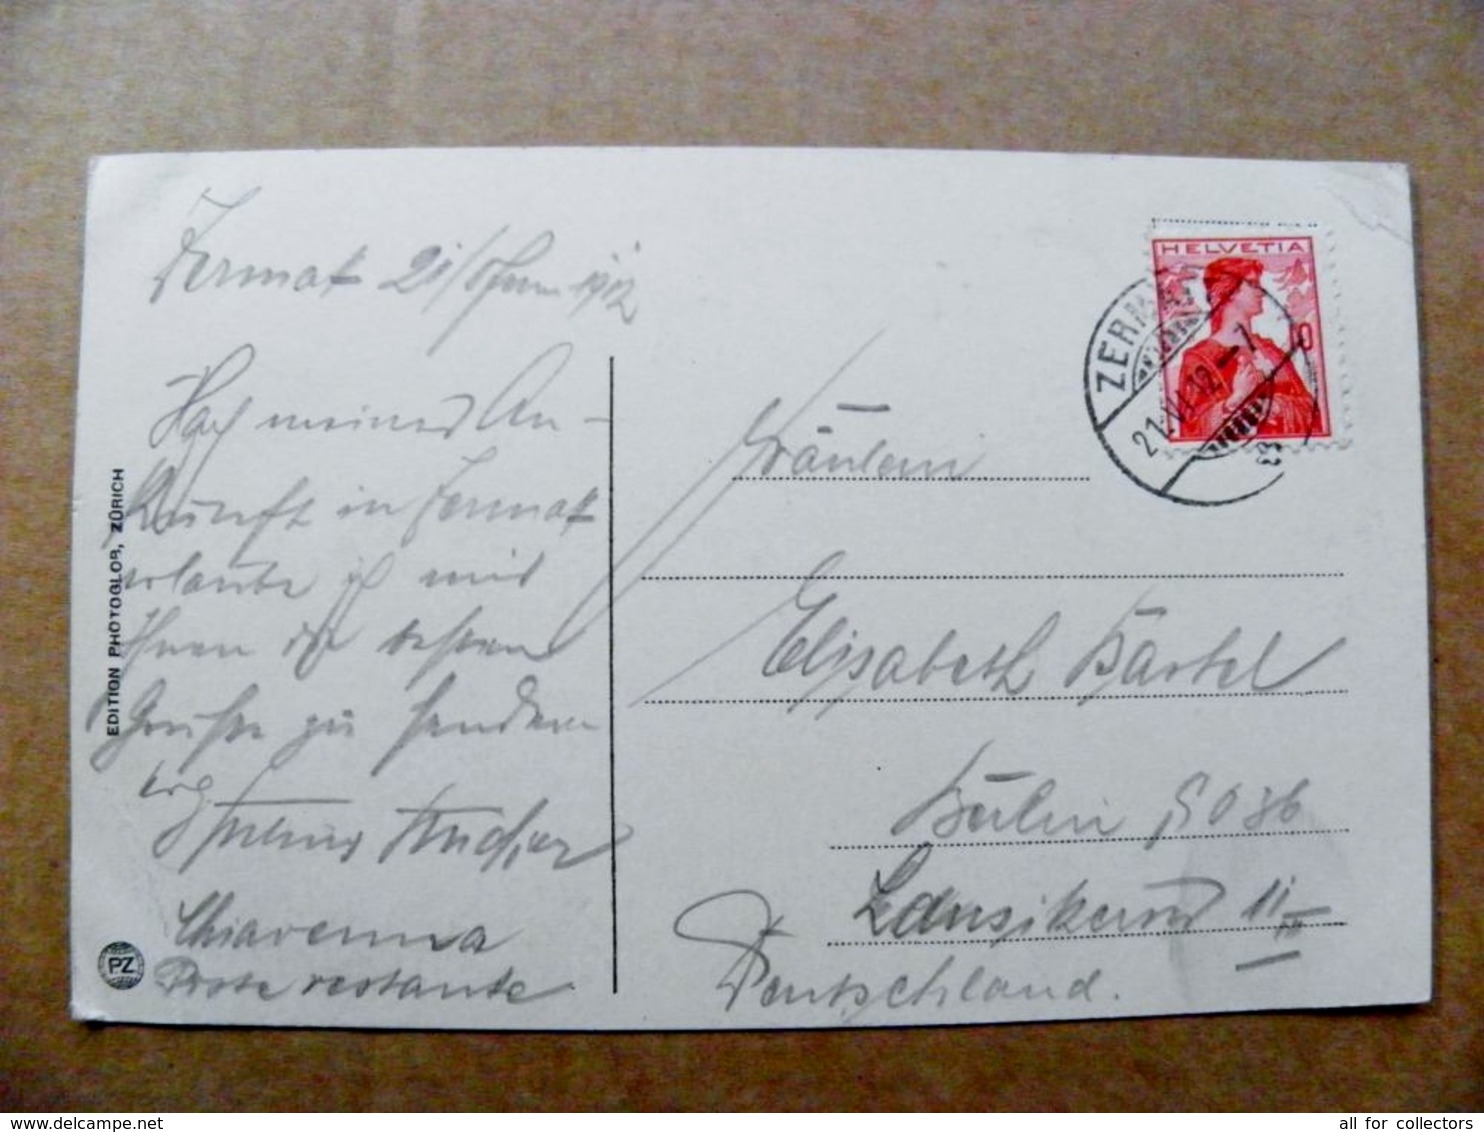 Zermat 21/ 1912
Nach meiner An-
kunft in Zermat
erlaube ich mir
Ihnen die besten
Grüße zu senden
Chiavenna
Poste restante
EDITION PHOTOGLOB, ZÜRICH
PZ
HELVETIA
ZERMATT
21.VI.12-7
Fräulein
Elisabeth Bärtel
Berlin SO 36
11 III
Deutschland.
all for collectors